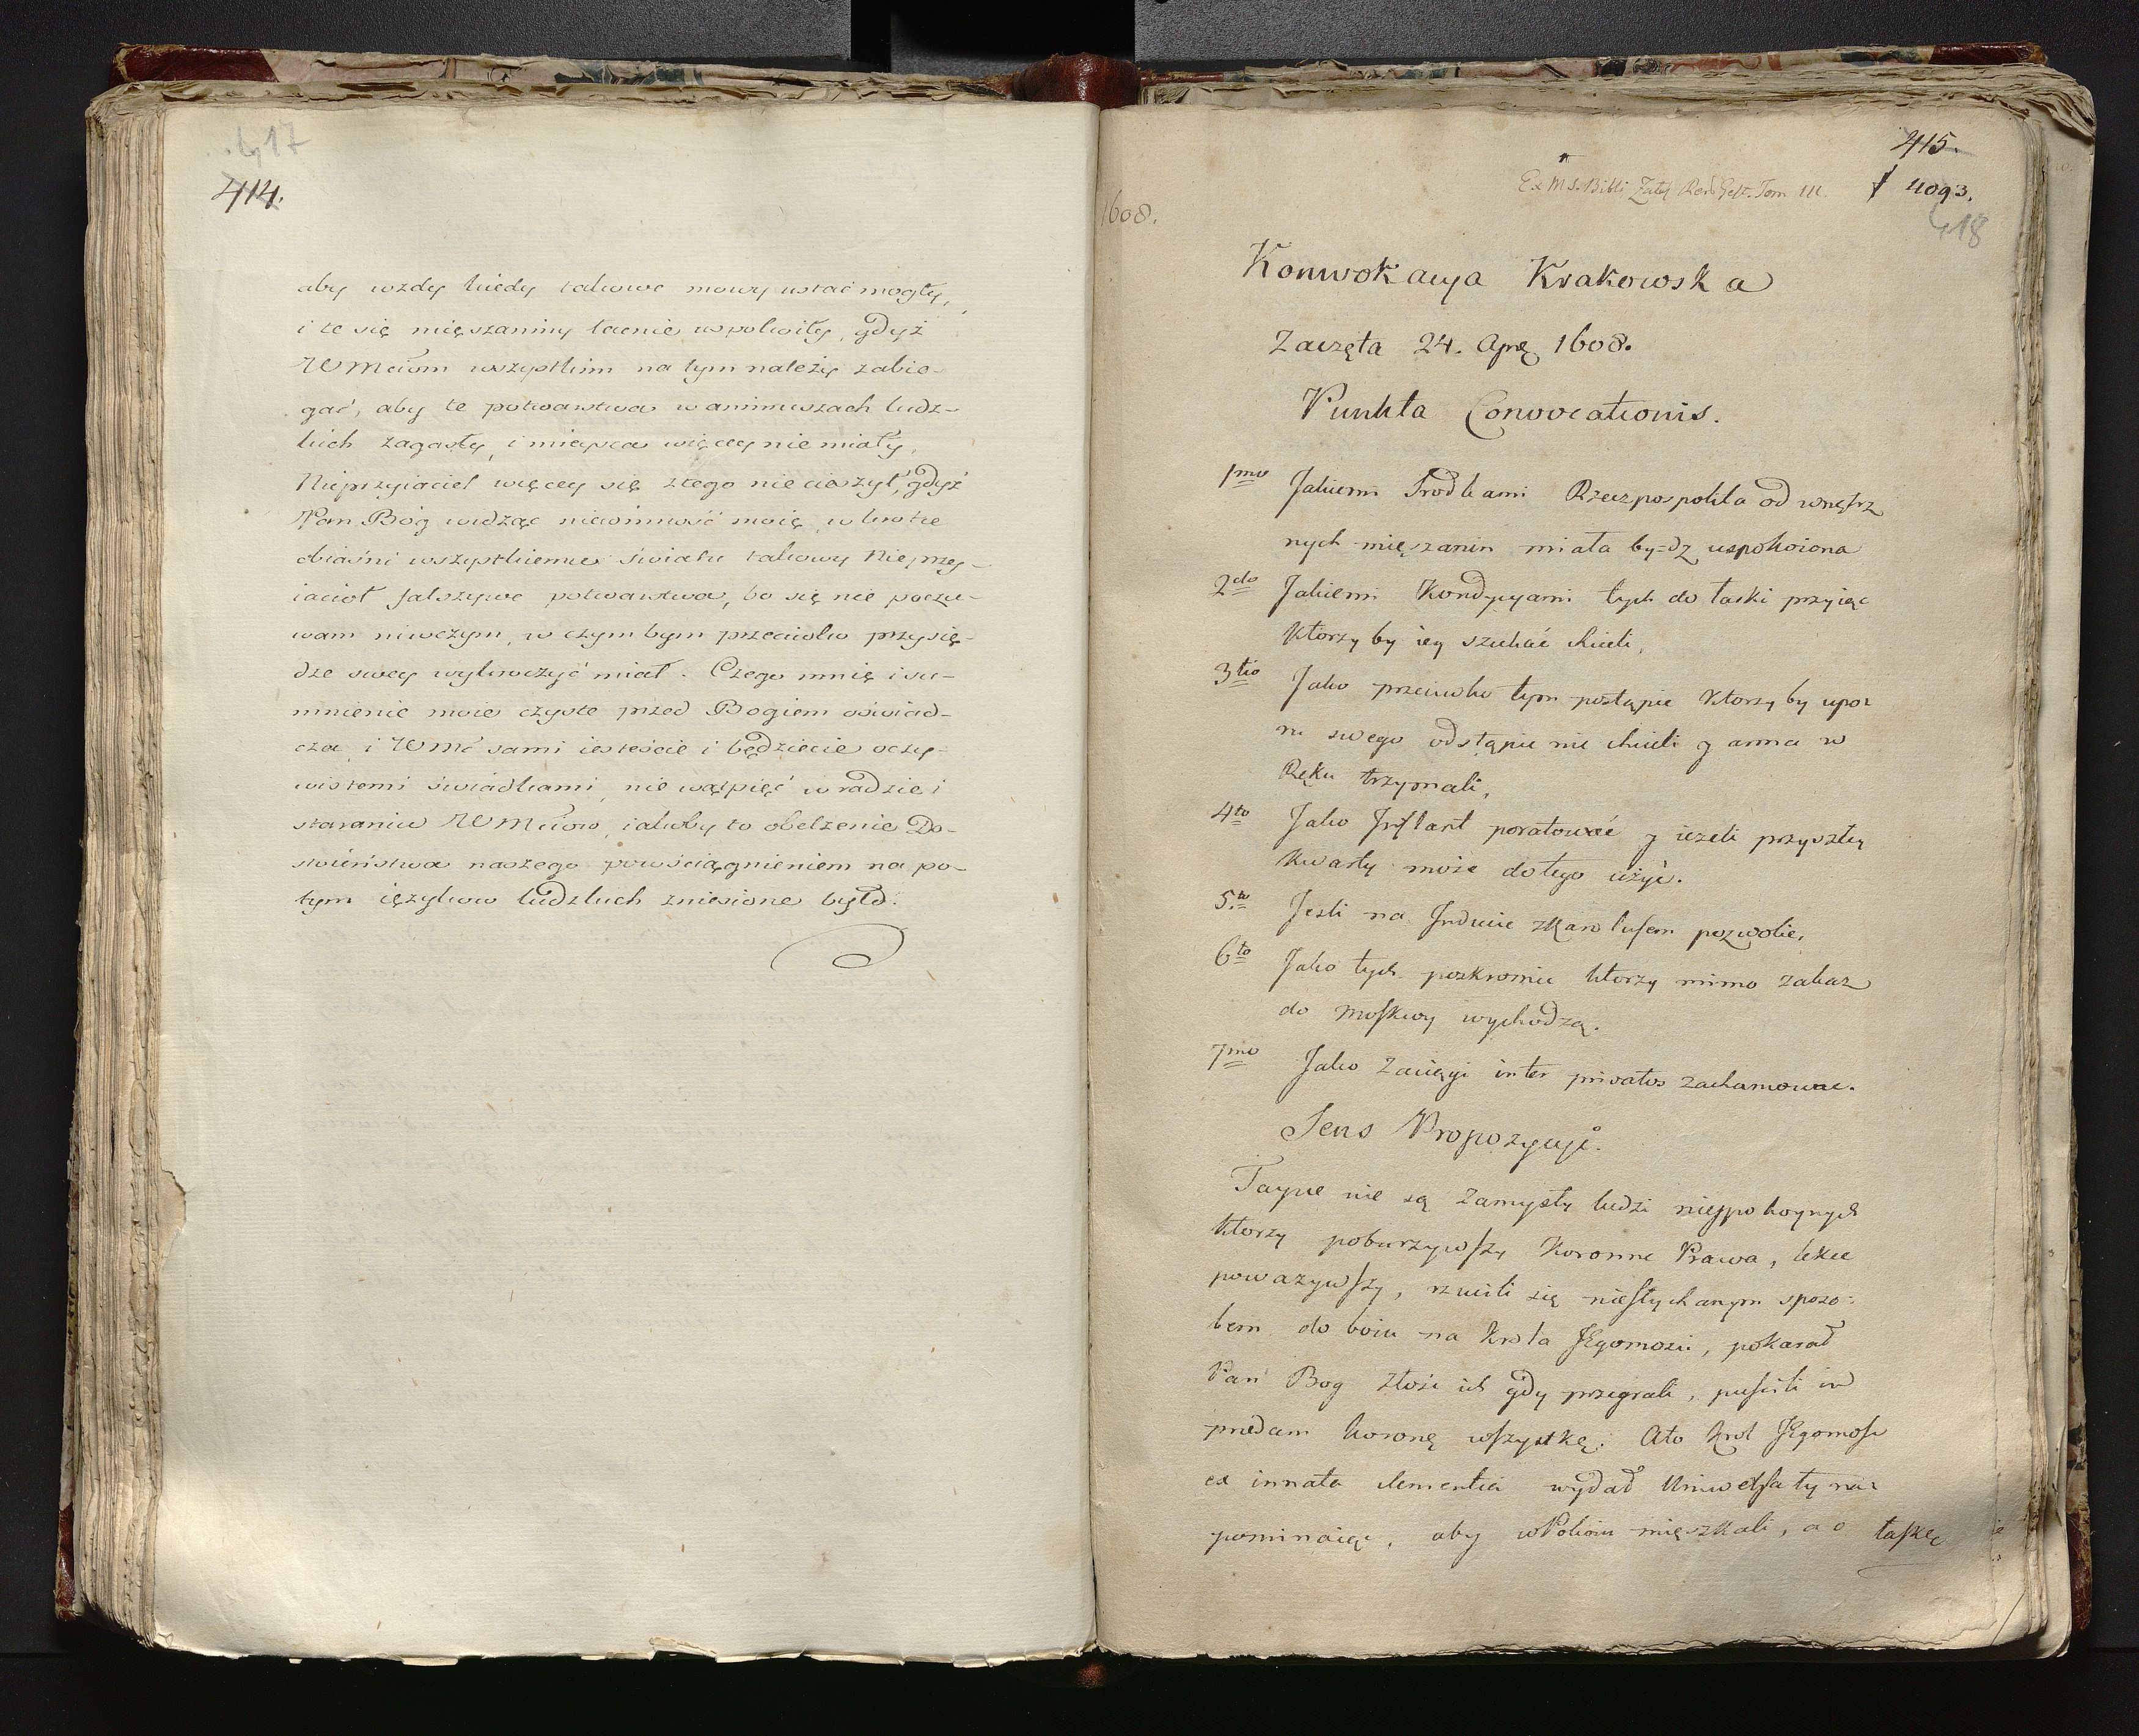 417
414.
aby wzdy kiedy takowe mowy ustać mogły,
i te się mięszaniny łacnie uspokoiły, gdyż
WMciom wszystkim na tym należy zabie-
gać, aby te potwarstwa w animuszach ludz-
kich zagasły, i mieysca więcey nie miały,
Nieprzyiaciel więcey się z tego nie cieszył, gdyż
Pan Bóg widząc niewinność moię, w krotce
obiaśni wszystkiemu światu takowy Nieprzy-
iacioł fałszywe potwarstwa, bo się nie poczu-
wam niwczym, w czym bym przeciwko przysię-
dze swey wykroczyć miał. Czego mnię i su-
mnienie moie czyste przed Bogiem oświad-
cza, i WMć sami iesteście i będziecie oczy-
wistemi świadkami, nie wątpięć w radzie i
staraniu WMciow, iakoby to obelżenie Do-
stoieństwa naszego powściągnieniem na po-
tym ięzykow ludzkich zniesione było.
1608.
415.
Ex MS. Bibli Zału Rer Gest. Tom III. f 1093.
418
Konwokacya Krakowska
Zaczęta 24. Apr 1608.
Punkta Convocationis.
1mo Jakiemi Srodkami Rzeczpospolita od wnętrz
nych mięszanin miała by=dz uspokoiona
2do Jakiemi Kondycyami tych do łaski przyiąc
Ktorzy by iey szukać chcieli,
3tio Jako przeciwko tym postąpic Ktorzy by upo=
ru swego odstąpic nie chcieli y arma w
Ręku trzymali,
4to Jako Inflant poratować y ieżeli przyszłey
Kwarty może do tego użyć.
5to Jesli na Inducie z Karolusem pozwolic,
6to Jako tych poskromic ktorzy mimo zakaz
do Moskwy wychodzą.
7mo Jako Zaciągi inter privatos zachamowac.
Sens Propozycyi.
Tayne nie są Zamysły ludzi niespokoynych
Ktorzy poburzywszy Koronne Prawa, lekce
powazywszy, rzucili się niesłychanym sposo-
bem do boiu na Krola JEgomosci, pokarał
Pan Bog złość ich gdy przegrali, puscili in
predam Koronę wszystkę. Ato Krol JEgomosc
ex innata clementia wydał Uniwersały na=
pominaiąc, aby w Pokoiu mięszkali, a o łaskę